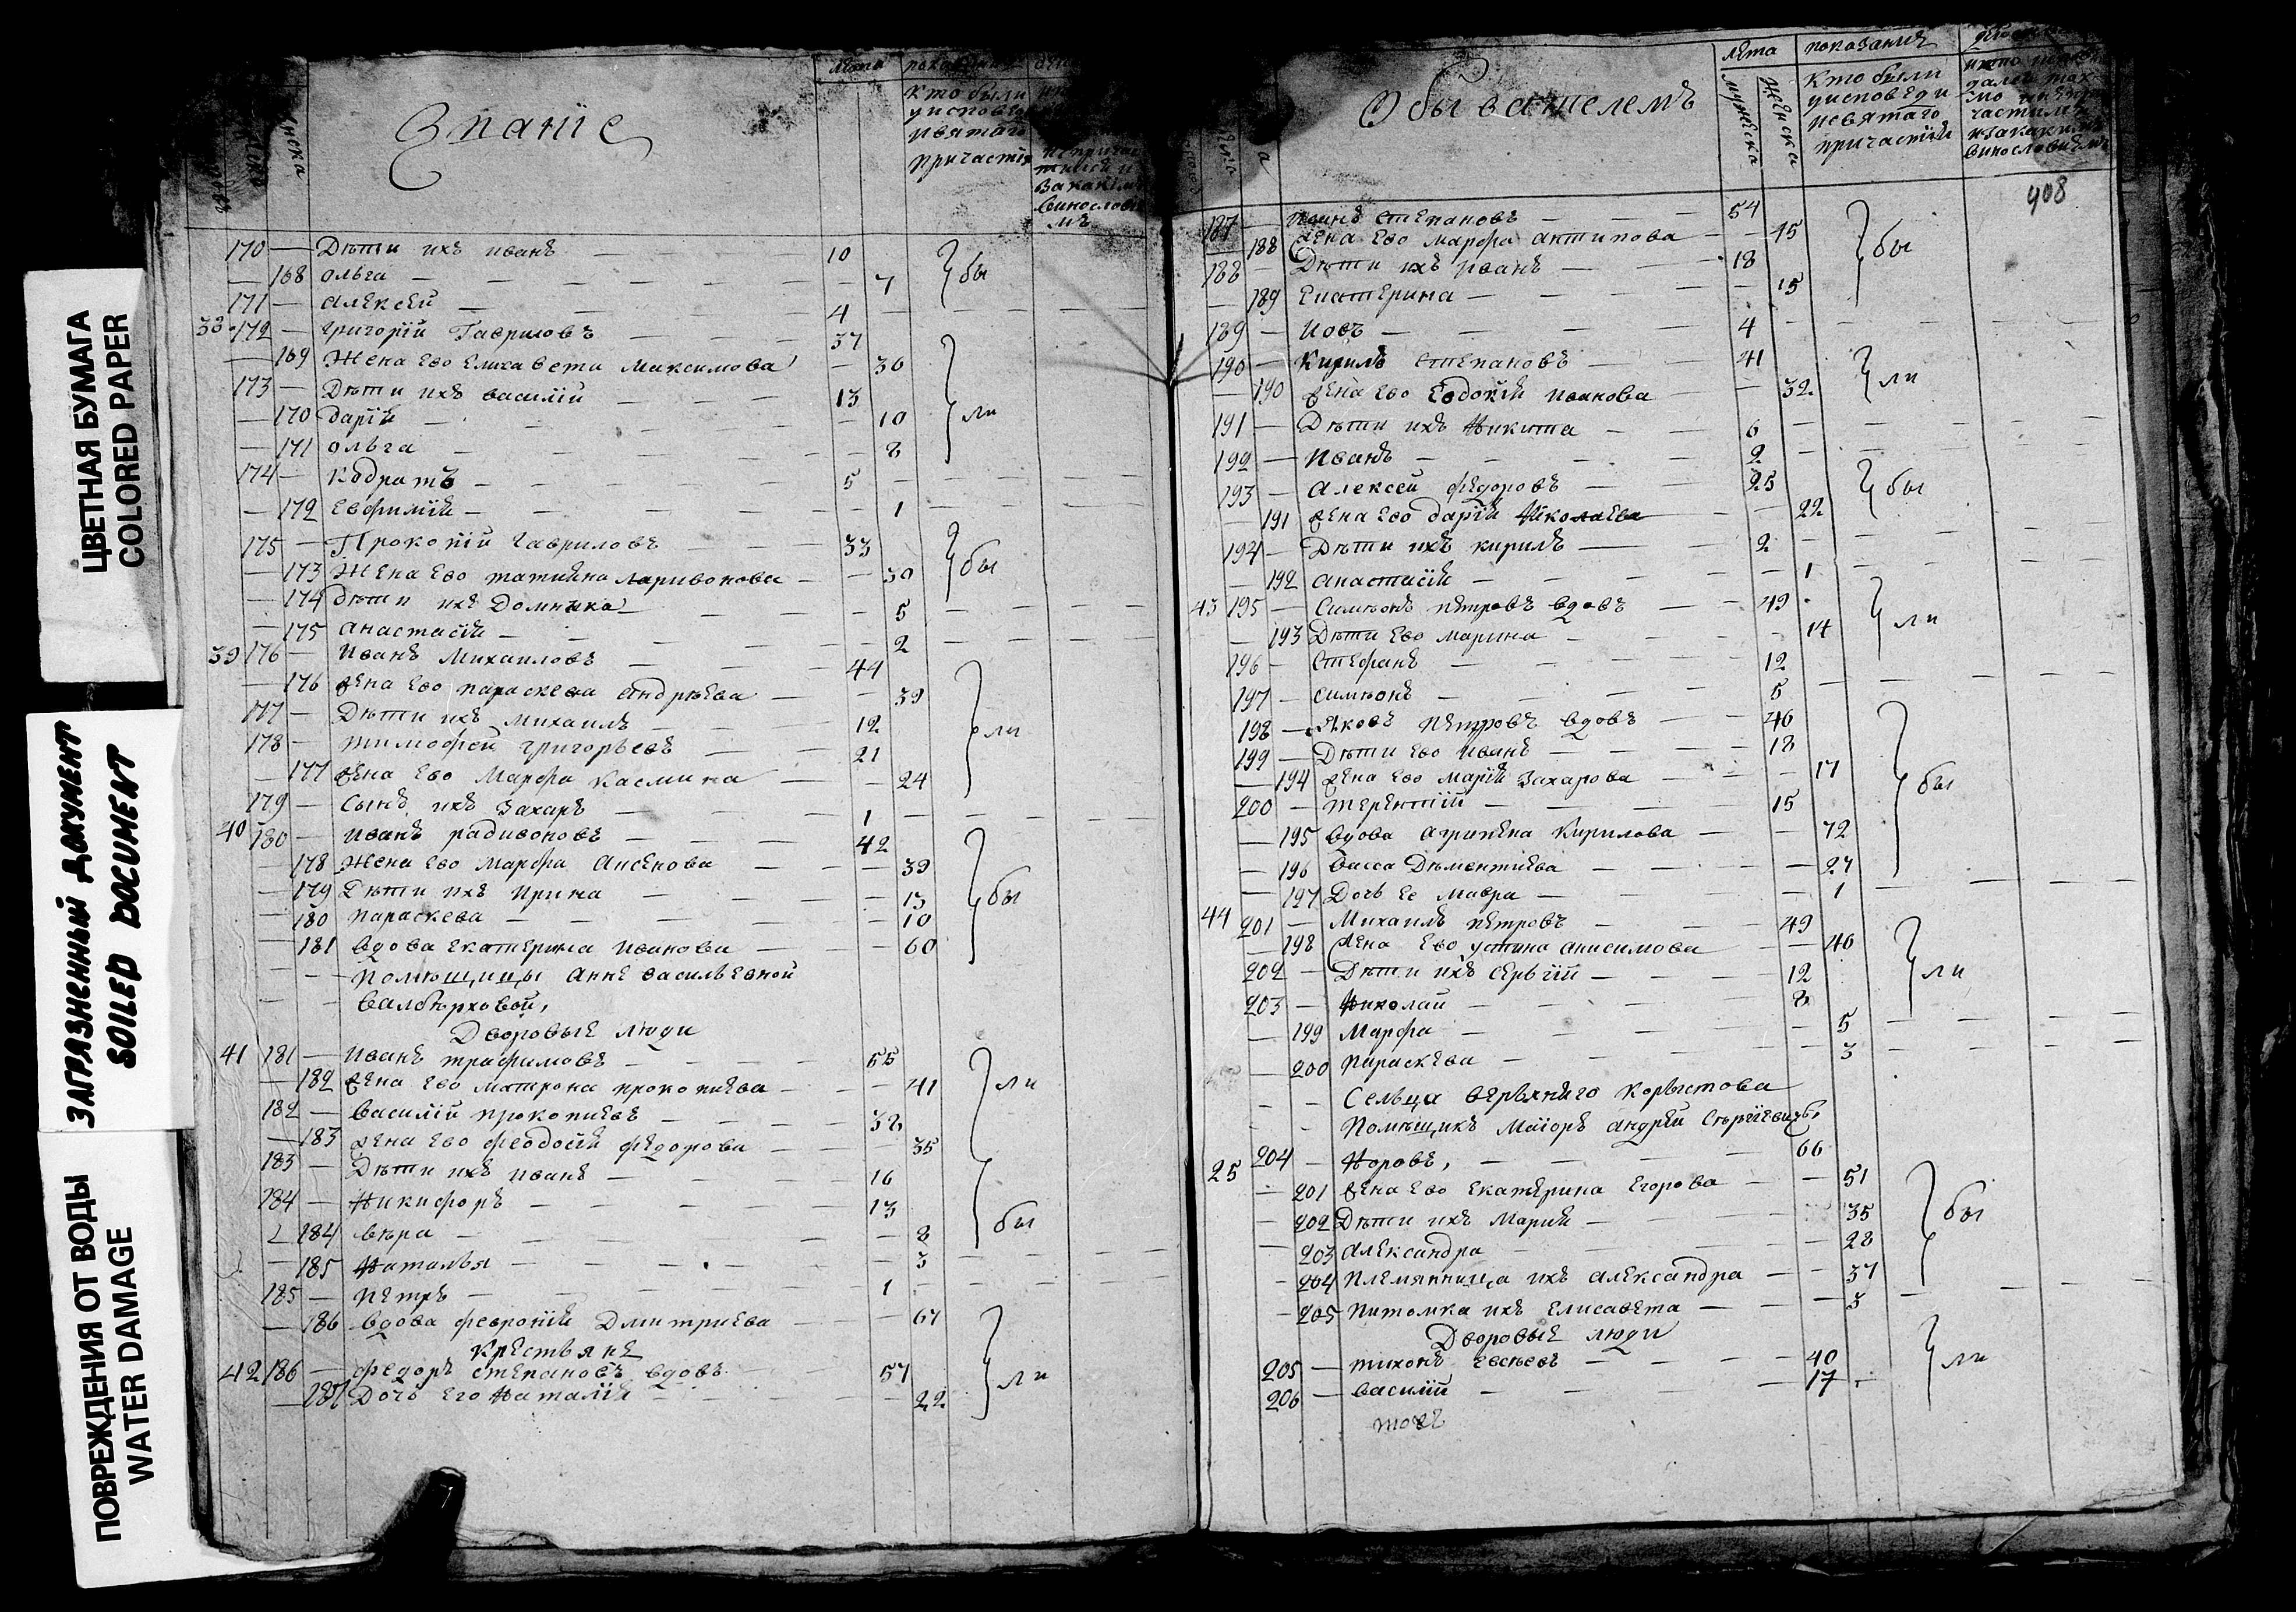 ЦВЕТНАЯ БУМАГА
COLORED PAPER
ЗАГРЯЗНЕННЫЙ ДОКУМЕНТ
SOILED DOCUMENT
ПОВРЕЖДЕНИЯ ОТ ВОДЫ
WATER DAMAGE
Знаніе
лета
кто были
у исповеди
и святаго
причастія
170 — Дѣти ихъ иванъ — 10
— 168 ольга — 7 бы
171 — алексей — 4
38 172 — григорій Гавриловъ — 37
— 169 Жена ево елисавета максимова — 36
173 — Дѣти ихъ василій — 13
— 170 дарія — 10 ли
— 171 ольга — 8
174 — Кодратъ — 5
— 172 евфимія — 1
175 — Прокопій гавриловъ — 33
— 173 Жена ево татияна ларивонова — 30 бы
— 174 дѣти ихъ Домника — 5
— 175 анастасія — 2
39 176 — иванъ михаиловъ — 44
— 176 жена ево параскева андрѣева — 39
177 — Дѣти ихъ михаилъ — 12 ли
178 — тимофей григорьевъ — 21
— 177 жена ево марфа касмина — 24
179 — Сынъ ихъ захаръ — 1
40 180 — иванъ радивоновъ — 42
— 178 Жена ево марфа аксенова — 39
— 179 Дѣти ихъ ирина — 13 бы
— 180 параскева — 10
— 181 вдова екатерина иванова — 60
помѣщицы анне васильевной
Дворовые люди
41 181 — иванъ трафимовъ — 55
— 182 жена ево матрона прокопиева — 41 ли
182 — василій прокопиевъ — 38
— 183 жена ево феодосія федорова — 35
183 — Дѣти ихъ иванъ — 16
184 — никифоръ — 13
184 вѣра — 8 бы
— 185 наталья — 3
185 — петръ — 1
— 186 вдова февронія Дмитриева — 67
крестьяне
42 186 — федоръ степановъ вдовъ — 57
— 187 Дочь его наталія — 22 ли
Обывателемъ
лета
показания
мужеска
женска
кто были
у исповеди
и святаго
причастія
408
187 — иванъ степановъ — 54
— 188 жена ево марфа антипова — 45
188 — Дѣти ихъ иванъ — 18 бы
— 189 екатерина — 15
189 — иовъ — 4
190 — кирилъ степановъ — 41
— 190 жена ево евдокія иванова — 32 ли
191 — Дѣти ихъ никита — 6
192 — иванъ — 2
193 — алексей федоровъ — 25 бы
— 191 жена ево дарія николаева — 22
194 — Дѣти ихъ кирилъ — 2
— 192 анастасія — 1
43 195 — симеонъ петровъ вдовъ — 49
— 193 Дѣти ево марина — 14 ли
196 — стефанъ — 12
197 — симеонъ — 5
198 — яковъ петровъ вдовъ — 46
199 — Дѣти ево иванъ — 18
— 194 жена ево марія захарова — 17
200 — терентій — 15 бы
— 195 вдова агрипена кирилова — 72
— 196 васса Дементиева — 27
— 197 Дочь ее мавра — 1
44 201 — михаилъ петровъ — 49
— 198 жена ево устина анисимова — 46
202 — Дѣти ихъ сергій — 12 ли
203 — николай — 8
— 199 марфа — 5
— 200 параскева — 3
Сельца верхняго корыстова
помѣщикъ маіоръ андрей сергіевичь
204 — норовъ, — 66
25 — 201 жена ево екатерина егорова — 51
— 202 Дѣти ихъ марія — 35 бы
— 203 александра — 28
— 204 племянница ихъ александра — 37
— 205 питомка ихъ елисавета — 3
Дворовые люди
205 — тихонъ евсѣевъ — 40 ли
206 — василій — 17